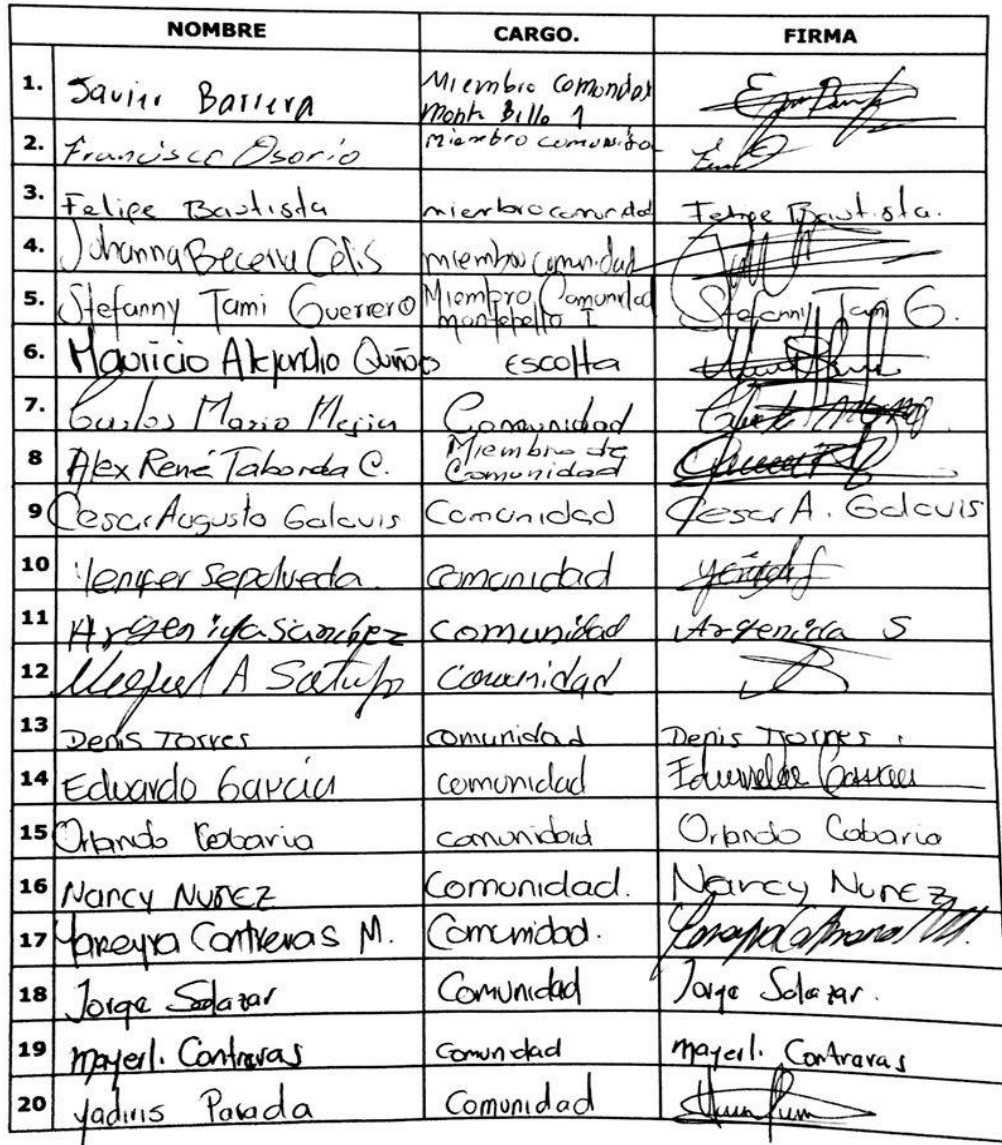 NOMBRE CARGO. FIRMA
1. Javier Barrera Miembro Comunidad
Monte Bello 1
2. Francisco Osorio miembro comunidad
3. Felipe Bautista miembro comunidad Felipe Bautista.
4. Johanna Becerra Celis miembro comunidad
5. Stefanny Tami Guerrero Miembro Comunidad
montebello I Stefanny Tami G.
6. Mauricio Alejandro Escolta
7. Carlos Mario Mejia Comunidad
8 Alex René Taborda C. Miembro de
Comunidad
9 Cesar Augusto Galavis Comunidad Cesar A. Galavis
10 Sepulveda. Comunidad
11 Sanchez Comunidad S
12 Miguel A Comunidad
13 Denis Torres comunidad Denis Torres.
14 Eduardo Garcia comunidad
15 Orlando Cobaria comunidad Orlando Cobaria
16 Nancy Nuñez Comunidad. Nancy Nuñez
17 Contreras M. Comunidad.
18 Jorge Salazar Comunidad Jorge Salazar.
19 Mayerl. Contreras Comunidad Mayerl. Contreras
20 Yadiris Parada Comunidad